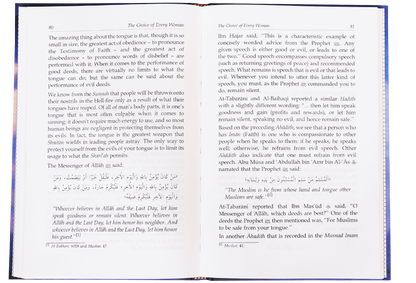 80
The Choice of Every Woman
The amazing thing about the tongue is that, though it is so
small in size, the greatest act of obedience – to pronounce
the Testimony of Faith – and the greatest act of
disobedience – to pronounce words of disbelief – are
performed with it. When it comes to the performance of
good deeds, there are virtually no limits to what the
tongue can do, but the same can be said about the
performance of evil deeds.
We know from the Sunnah that people will be thrown onto
their nostrils in the Hell-fire only as a result of what their
tongues have reaped. Of all of man's body parts, it is one's
tongue that is most often culpable when it comes to
sinning; it doesn't require much energy to use, and so most
human beings are negligent in protecting themselves from
its evils. In fact, the tongue is the greatest weapon that
Shaitân wields in leading people astray. The only way to
protect oneself from the evils of one's tongue is to limit its
usage to what the Sharî'ah permits.
The Messenger of Allâh said:
"Whoever believes in Allâh and the Last Day, let him
speak goodness or remain silent. Whoever believes in
Allâh and the Last Day, let him honor his neighbor. And
whoever believes in Allâh and the Last Day, let him honor
his guest."
The Choice of Every Woman
81
Ibn Hajar said, "This is a characteristic example of
concisely worded advice from the Prophet. Any
given speech is either good or evil, or leads to one of
the two." Good speech encompasses compulsory speech
(such as returning greetings of peace) and recommended
speech. What remains is speech that is evil or that leads to
evil. Whenever you intend to utter this latter kind of
speech, you must, as the Prophet commanded you to
do, remain silent.
At-Tabarâni and Al-Baihaqi reported a similar Hadîth
with a slightly different wording: "... then let him speak
goodness and gain (profits and rewards), or let him
remain silent, speaking no evil, and hence remain safe."
Based on the preceding Ahâdîth, we see that a person who
has Imân (Faith) is one who is compassionate to other
people when he speaks to them; if he speaks, he speaks
well; otherwise, he refrains from evil speech. Other
Ahâdîth also indicate that one must refrain from evil
speech. Abu Mûsa and 'Abdullah bin 'Amr bin Al-'As
narrated that the Prophet said:
"The Muslim is he from whose hand and tongue other
Muslims are safe."
At-Tabarâni reported that Ibn Mas'ûd said, "O
Messenger of Allâh, which deeds are best?" One of the
deeds the Prophet then mentioned was, "For Muslims
to be safe from your tongue."
In another Ahâdîth that is recorded in the Musnad Imam
Muslim 41.